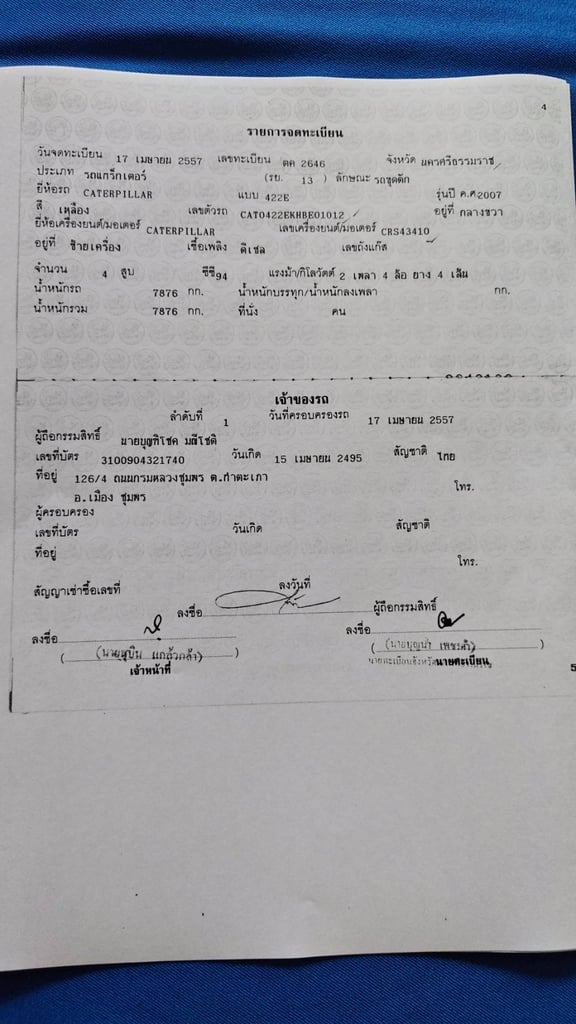 4
รายการจดทะเบียน
วันจดทะเบียน 17 เมษายน 2557 เลขทะเบียน ตค 2646 จังหวัด นครศรีธรรมราช
ประเภท รถแทร็กเตอร์ (รย. 13 ) ลักษณะ รถขุดตัก
ยี่ห้อรถ CATERPILLAR แบบ 422E รุ่นปี ค.ศ2007
สี เหลือง เลขตัวรถ CAT0422EKHBE01012 อยู่ที่ กลางขวา
ยี่ห้อเครื่องยนต์/มอเตอร์ CATERPILLAR เลขเครื่องยนต์/มอเตอร์ CRS43410
อยู่ที่ ซ้ายเครื่อง เชื้อเพลิง ดีเซล เลขถังแก๊ส
จำนวน 4 สูบ ซีซี 94 แรงม้า/กิโลวัตต์ 2 เพลา 4 ล้อ ยาง 4 เส้น
น้ำหนักรถ 7876 กก. น้ำหนักบรรทุก/น้ำหนักลงเพลา กก.
น้ำหนักรวม 7876 กก. ที่นั่ง คน
เจ้าของรถ
ลำดับที่ 1 วันที่ครอบครองรถ 17 เมษายน 2557
ผู้ถือกรรมสิทธิ์ นายบุญทิโชค มณีโชติ
เลขที่บัตร 3100904321740 วันเกิด 15 เมษายน 2495 สัญชาติ ไทย
ที่อยู่ 126/4 ถนนกรมหลวงชุมพร ต.ท่าตะเภา
อ.เมือง ชุมพร โทร.
ผู้ครอบครอง
เลขที่บัตร วันเกิด สัญชาติ
ที่อยู่ โทร.
สัญญาเช่าซื้อเลขที่ ลงวันที่
ลงชื่อ ผู้ถือกรรมสิทธิ์
ลงชื่อ ลงชื่อ
( แกล้วกล้า) ) ( (นายบุญนำ เพชรดำ) )
เจ้าหน้าที่ นายทะเบียนจังหวัด นายทะเบียน
5